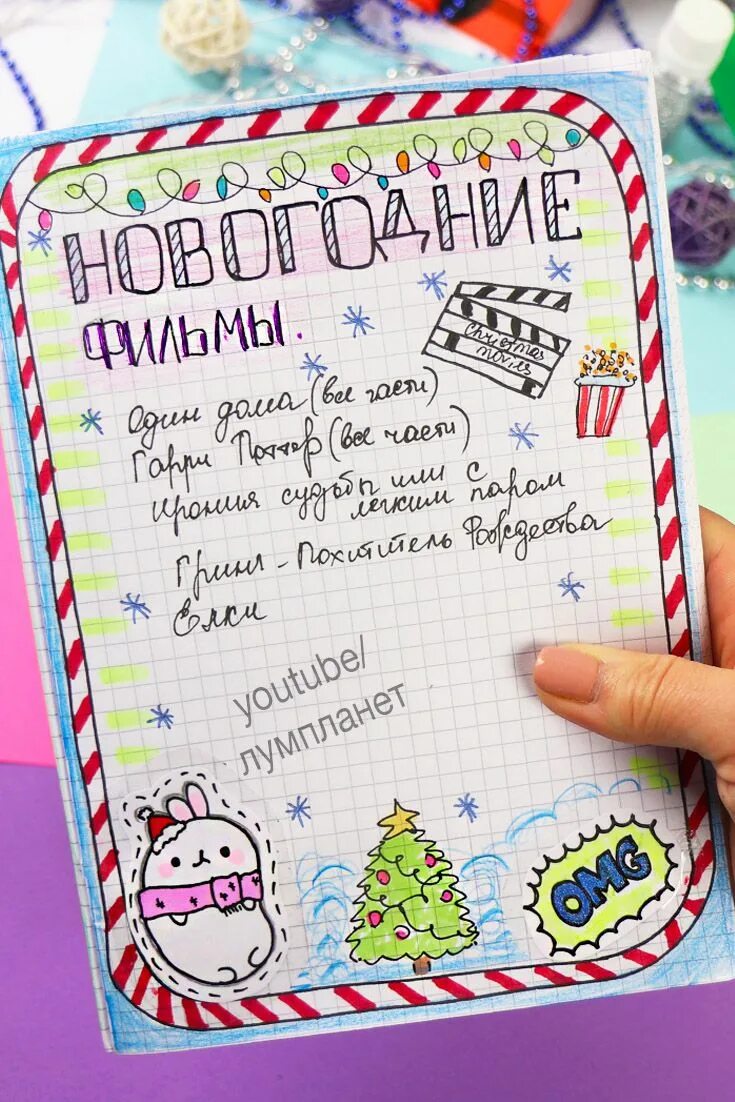 НОВОГОДНИЕ
ФИЛЬМЫ.
Christmas
movies
Один дома (все части)
Гарри Поттер (все части)
Ирония судьбы или с
легким паром
Гринч - Похититель Рождества
Ёлки
youtube/
лумпланет
OMG